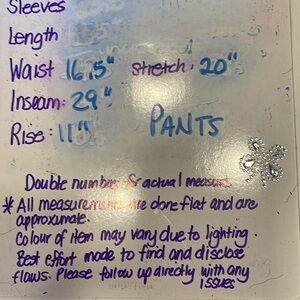 Sleeves
Length
Waist 16.5" stretch: 20"
Inseam: 29"
Rise: 11"
PANTS
Double numbers for actual measure
* All measurements are done flat and are
approximate.
Colour of item may vary due to lighting.
Best effort made to find and disclose
flaws. Please follow up directly with any
issues.